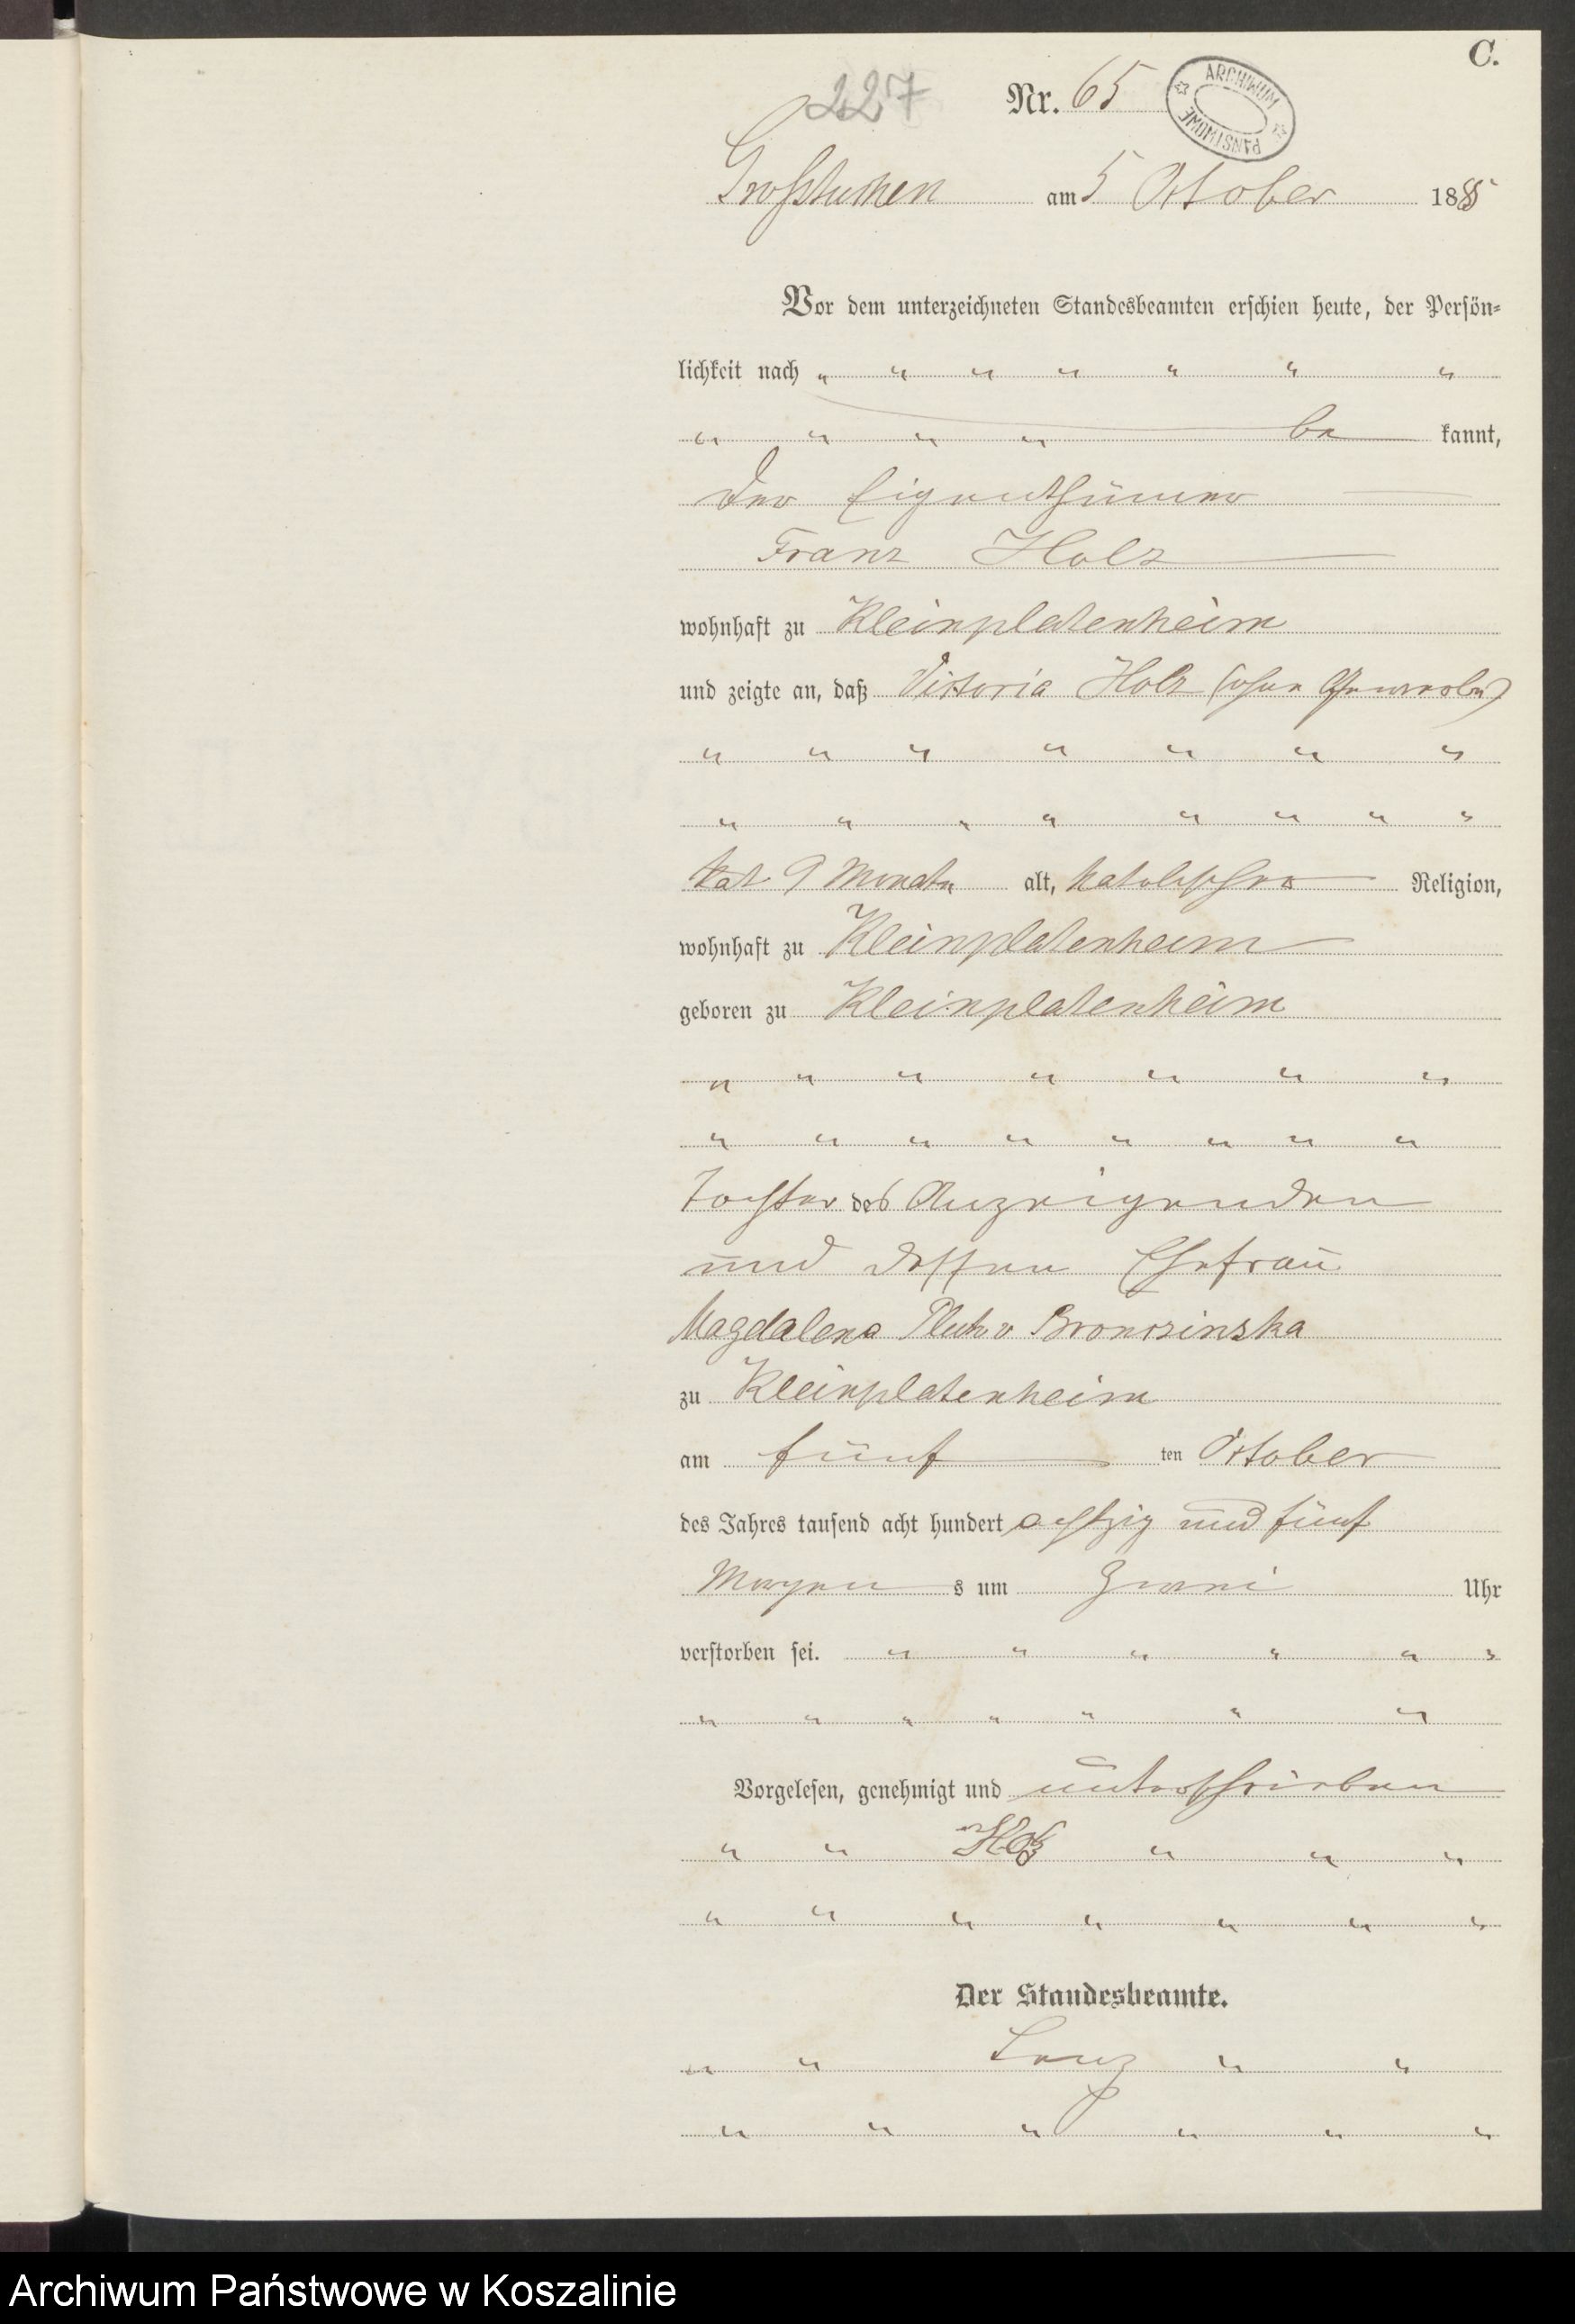 C.
227 Nr. 65
ARCHIWUM PAŃSTWOWE
Großtuchen am 5 October 1885
Vor dem unterzeichneten Standesbeamten erschien heute, der Persön-
lichkeit nach " " " " " " "
" " " " be kannt,
der Eigenthümer
Franz Holz
wohnhaft zu Kleinplatenheim
und zeigte an, daß Victoria Holz (ohne Gewerbe)
" " " " " " "
" " " " " " " "
9 Monate alt, katolischer Religion,
wohnhaft zu Kleinplatenheim
geboren zu Kleinplatenheim
" " " " " " "
" " " " " " " "
Tochter des Anzeigenden
und dessen Ehefrau
Magdalena v
zu Kleinplatenheim
am fünf ten October
des Jahres tausend acht hundert achtzig und fünf
Morgen s um Zwei Uhr
verstorben sei. " " " " " "
" " " " " " "
Vorgelesen, genehmigt und unterschrieben
" " Holz " " "
" " " " " " "
Der Standesbeamte.
" " " "
" " " " " "
Archiwum Państwowe w Koszalinie